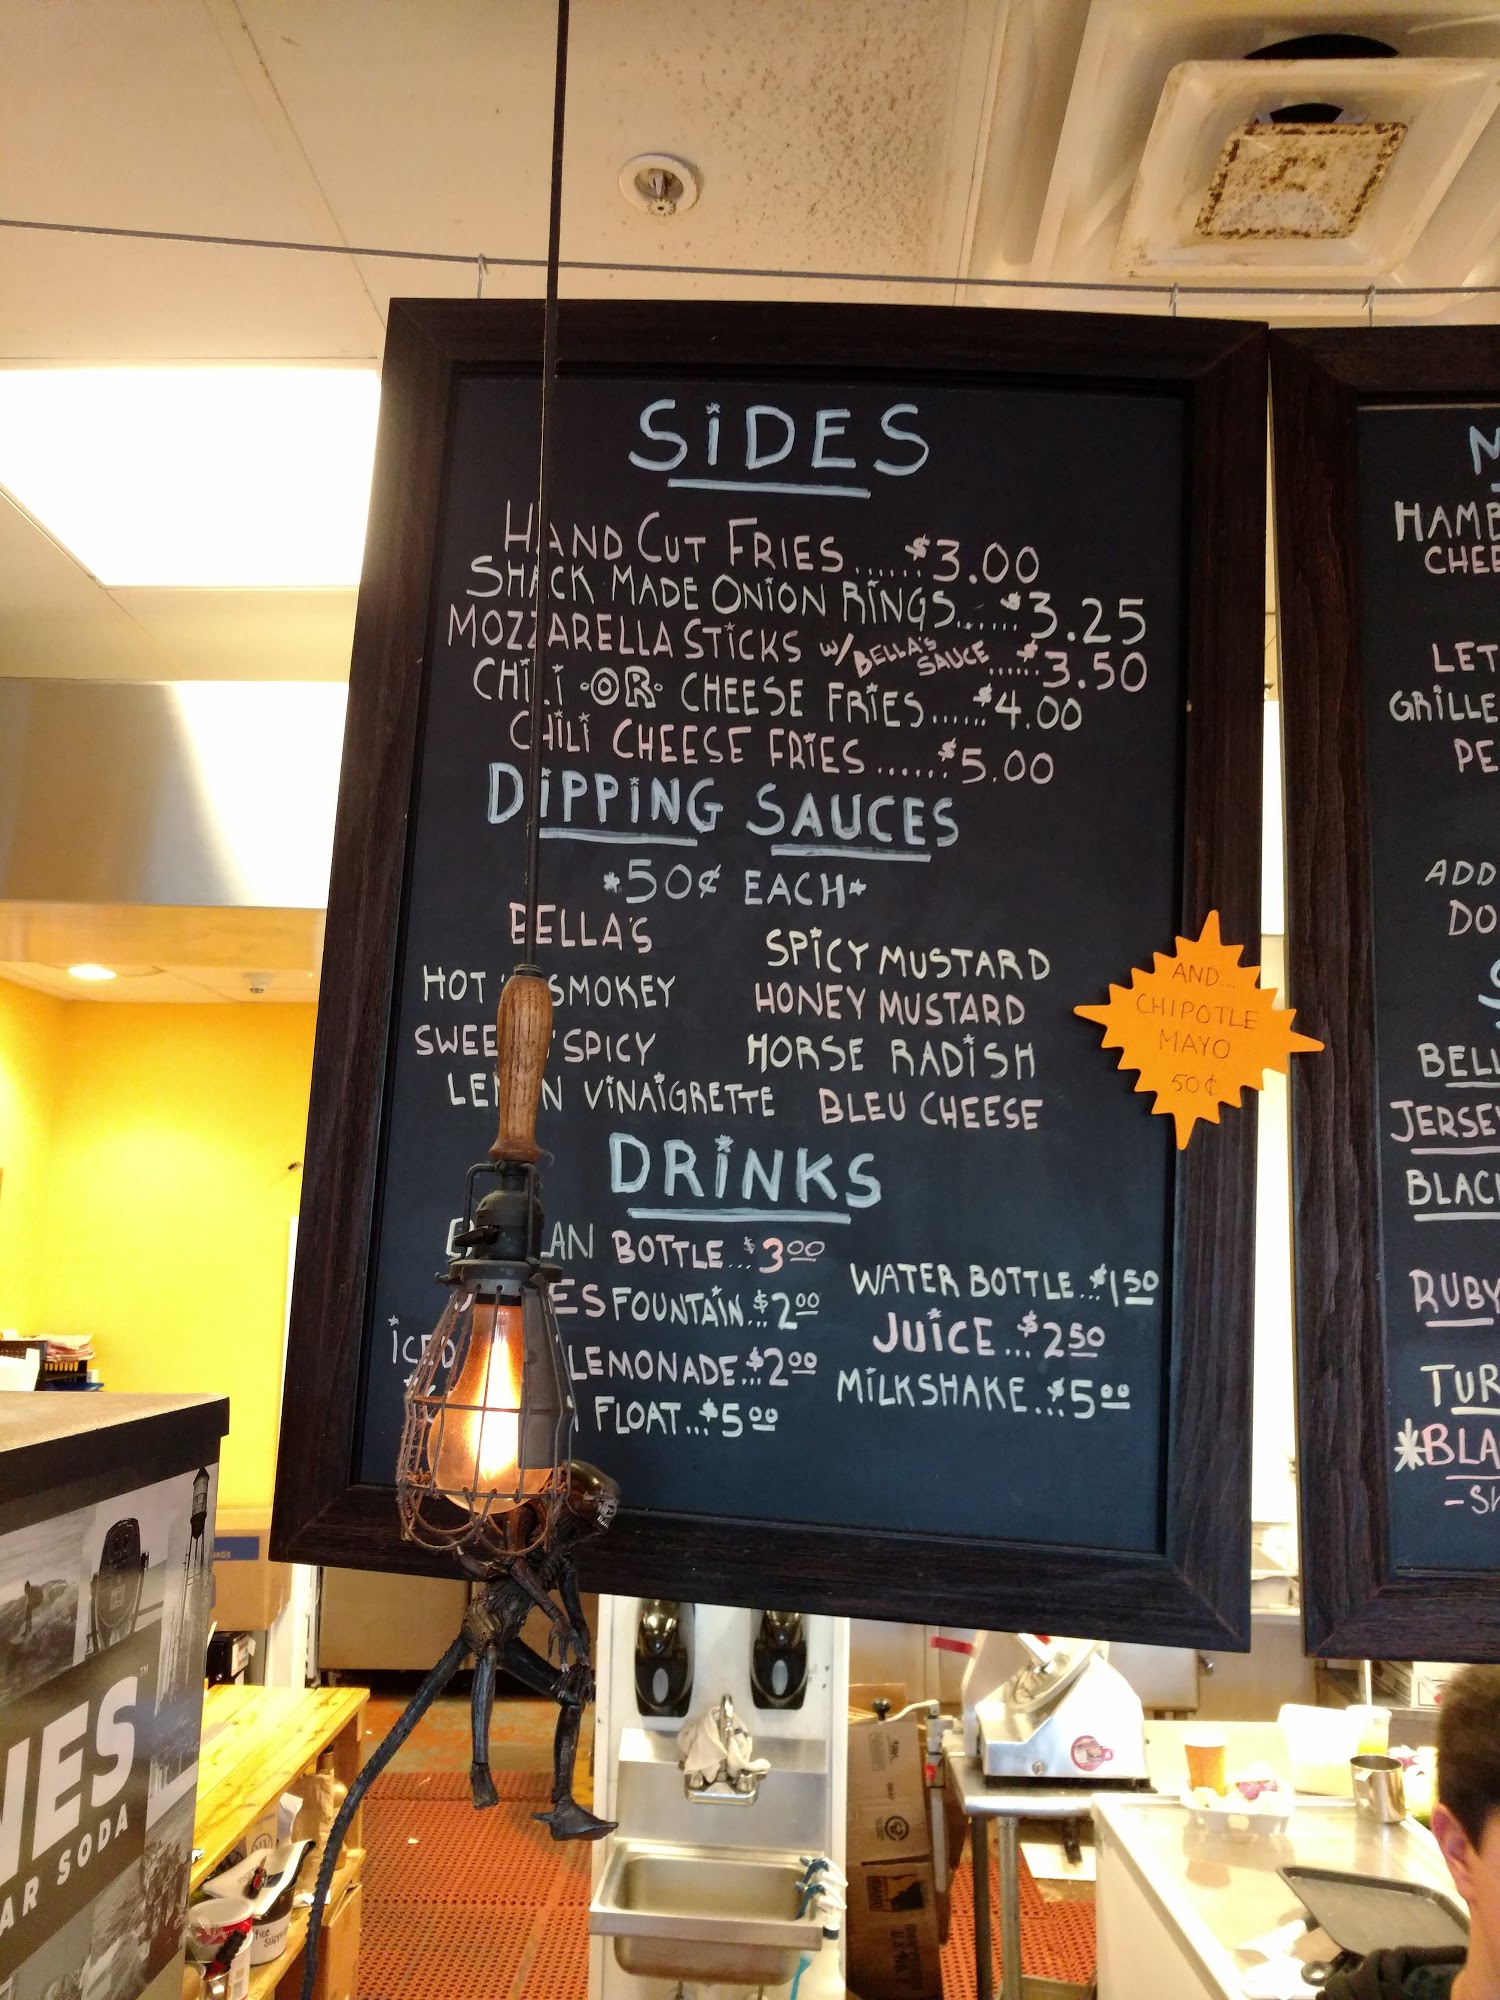 SiDES
HAND CUT FRIES......$3.00
SHACK MADE ONION RINGS......$3.25
MOZZARELLA STICKS w/ BELLA'S SAUCE......$3.50
CHILI -OR- CHEESE FRIES......$4.00
CHILI CHEESE FRIES......$5.00
DIPPING SAUCES
*50¢ EACH*
BELLA'S
HOT SMOKEY
SWEET 'N' SPICY
LEMON VINAIGRETTE
SPICY MUSTARD
HONEY MUSTARD
HORSE RADISH
BLEU CHEESE
AND...
CHIPOTLE
MAYO
50¢
DRINKS
BOTTLE...$3.00
FOUNTAIN...$2.00
ICED LEMONADE...$2.00
FLOAT...$5.00
WATER BOTTLE...$1.50
JUICE...$2.50
MILKSHAKE...$5.00
HAMB
CHEE
LET
GRILLE
PE
ADD
DO
BELL
JERSEY
BLACK
RUBY
TUR
*BLA
-SH
NES™
AR SODA